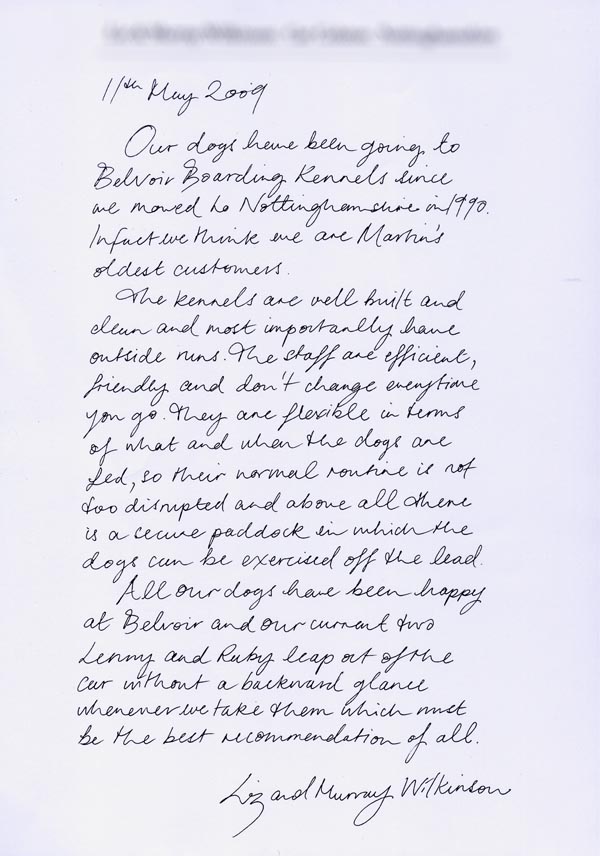 11th May 2009
Our dogs have been going to
Belvoir Boarding Kennels since
we moved to Nottinghamshire in 1990.
Infact we think we are Martin's
oldest customers.
The kennels are well built and
clean and most importantly have
outside runs. The staff are efficient,
friendly and don't change everytime
you go. They are flexible in terms
of what and when the dogs are
fed, so their normal routine is not
too disrupted and above all there
is a secure paddock in which the
dogs can be exercised off the lead.
All our dogs have been happy
at Belvoir and our current two
Lenny and Ruby leap out of the
car without a backward glance
whenever we take them which must
be the best recommendation of all.
Liz and Murray Wilkinson